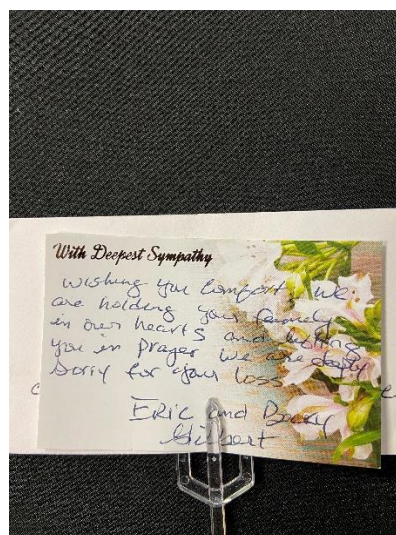 With Deepest Sympathy
Wishing you Comfort, we
are holding your family
in our hearts and lifting
you in prayer we are deeply
Sorry for your loss
Eric and Becky
Gilbert